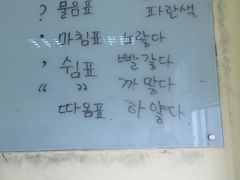 ? 물음표 파란색.
. 마침표 노랗다
, 쉼표 빨갛다
“ ” 까맣다
따옴표 하얗다.